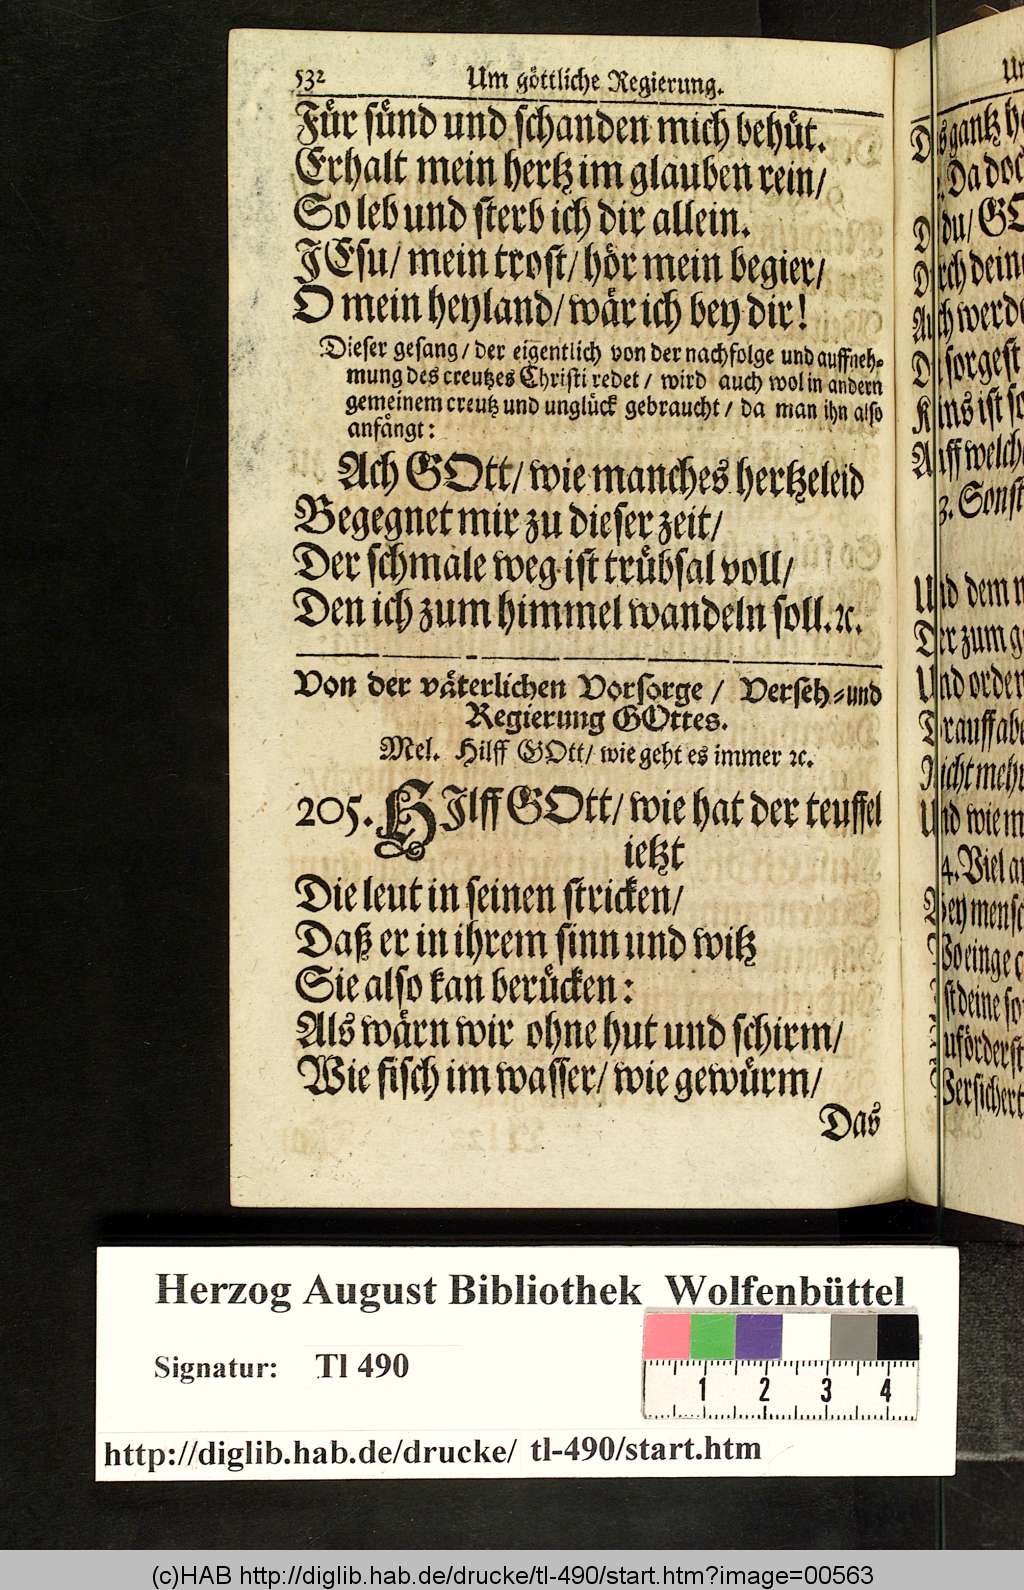 532 Um göttliche Regierung.
Für sünd und schanden mich behüt.
Erhalt mein hertz im glauben rein/
So leb und sterb ich dir allein.
JEsu/ mein trost/ hör mein begier/
O mein heyland/ wär ich bey dir!
Dieser gesang/ der eigentlich von der nachfolge und auffneh-
mung des creutzes Christi redet/ wird auch wol in andern
gemeinem creutz und unglück gebraucht/ da man ihn also
anfängt:
Ach GOtt/ wie manches hertzeleid
Begegnet mir zu dieser zeit/
Der schmale weg ist trübsal voll/
Den ich zum himmel wandeln soll. ꝛc.
Von der väterlichen Vorsorge/ Verseh- und
Regierung GOttes.
Mel. Hilff GOtt/ wie geht es immer ꝛc.
205. HIlff GOtt/ wie hat der teuffel
ietzt
Die leut in seinen stricken/
Daß er in ihrem sinn und witz
Sie also kan berücken:
Als wärn wir ohne hut und schirm/
Wie fisch im wasser/ wie gewürm/
Das
gantz
Da doc
du/ GO
dein
werde
sorgest
ist so
welch
3. Sonst
dem
zum
orden
mehr
4. Viel
mensc
einge
deine so
Herzog August Bibliothek Wolfenbüttel
Signatur: Tl 490
1 2 3 4
http://diglib.hab.de/drucke/ tl-490/start.htm
(c)HAB http://diglib.hab.de/drucke/tl-490/start.htm?image=00563